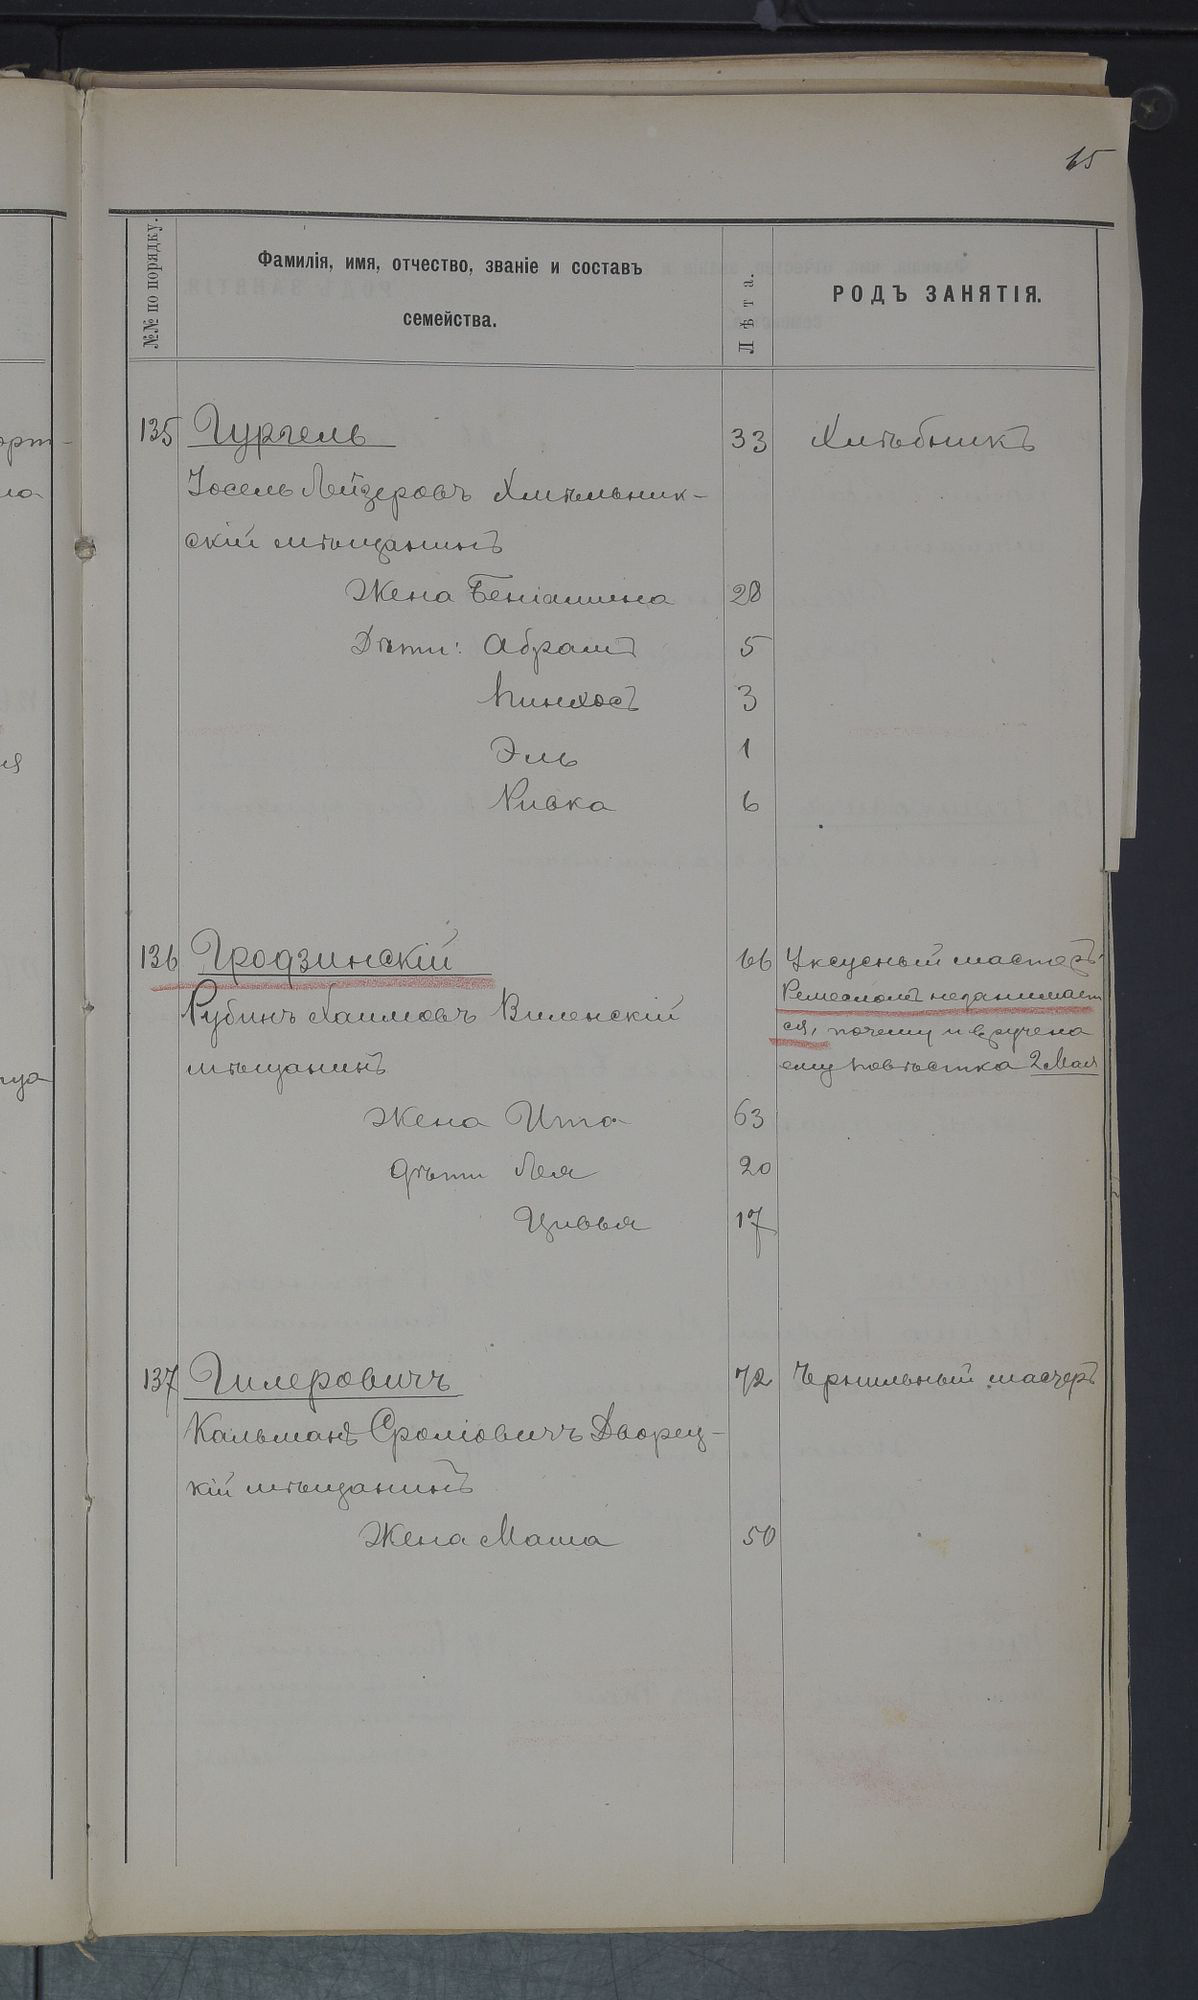 65
№№ по порядку.
Фамилія, имя, отчество, званіе и составъ
семейства.
Лѣта.
РОДЪ ЗАНЯТІЯ.
135 Гургель 33 Хлѣбникъ
Іосель Лейзеровъ Хмѣльник-
скій мѣщанинъ
Жена Беніамина 28
Дѣти: Абрамъ 5
Пинхосъ 3
Эль 1
Ривка 6
136 Гродзинскій 66 Уксусный мастеръ.
Ремесломъ незанимает
Рубинъ Хаимовъ Виленскій
ся, почему и вручена
мѣщанинъ
ему повѣстка 2 Мая
Жена Ита 63
Дѣти Лея 20
Цивья 17
137 Гилеровичъ 72 Чернильный мастеръ
Кальманъ Сроліовичъ Дворец-
кій мѣщанинъ
Жена Маша 50